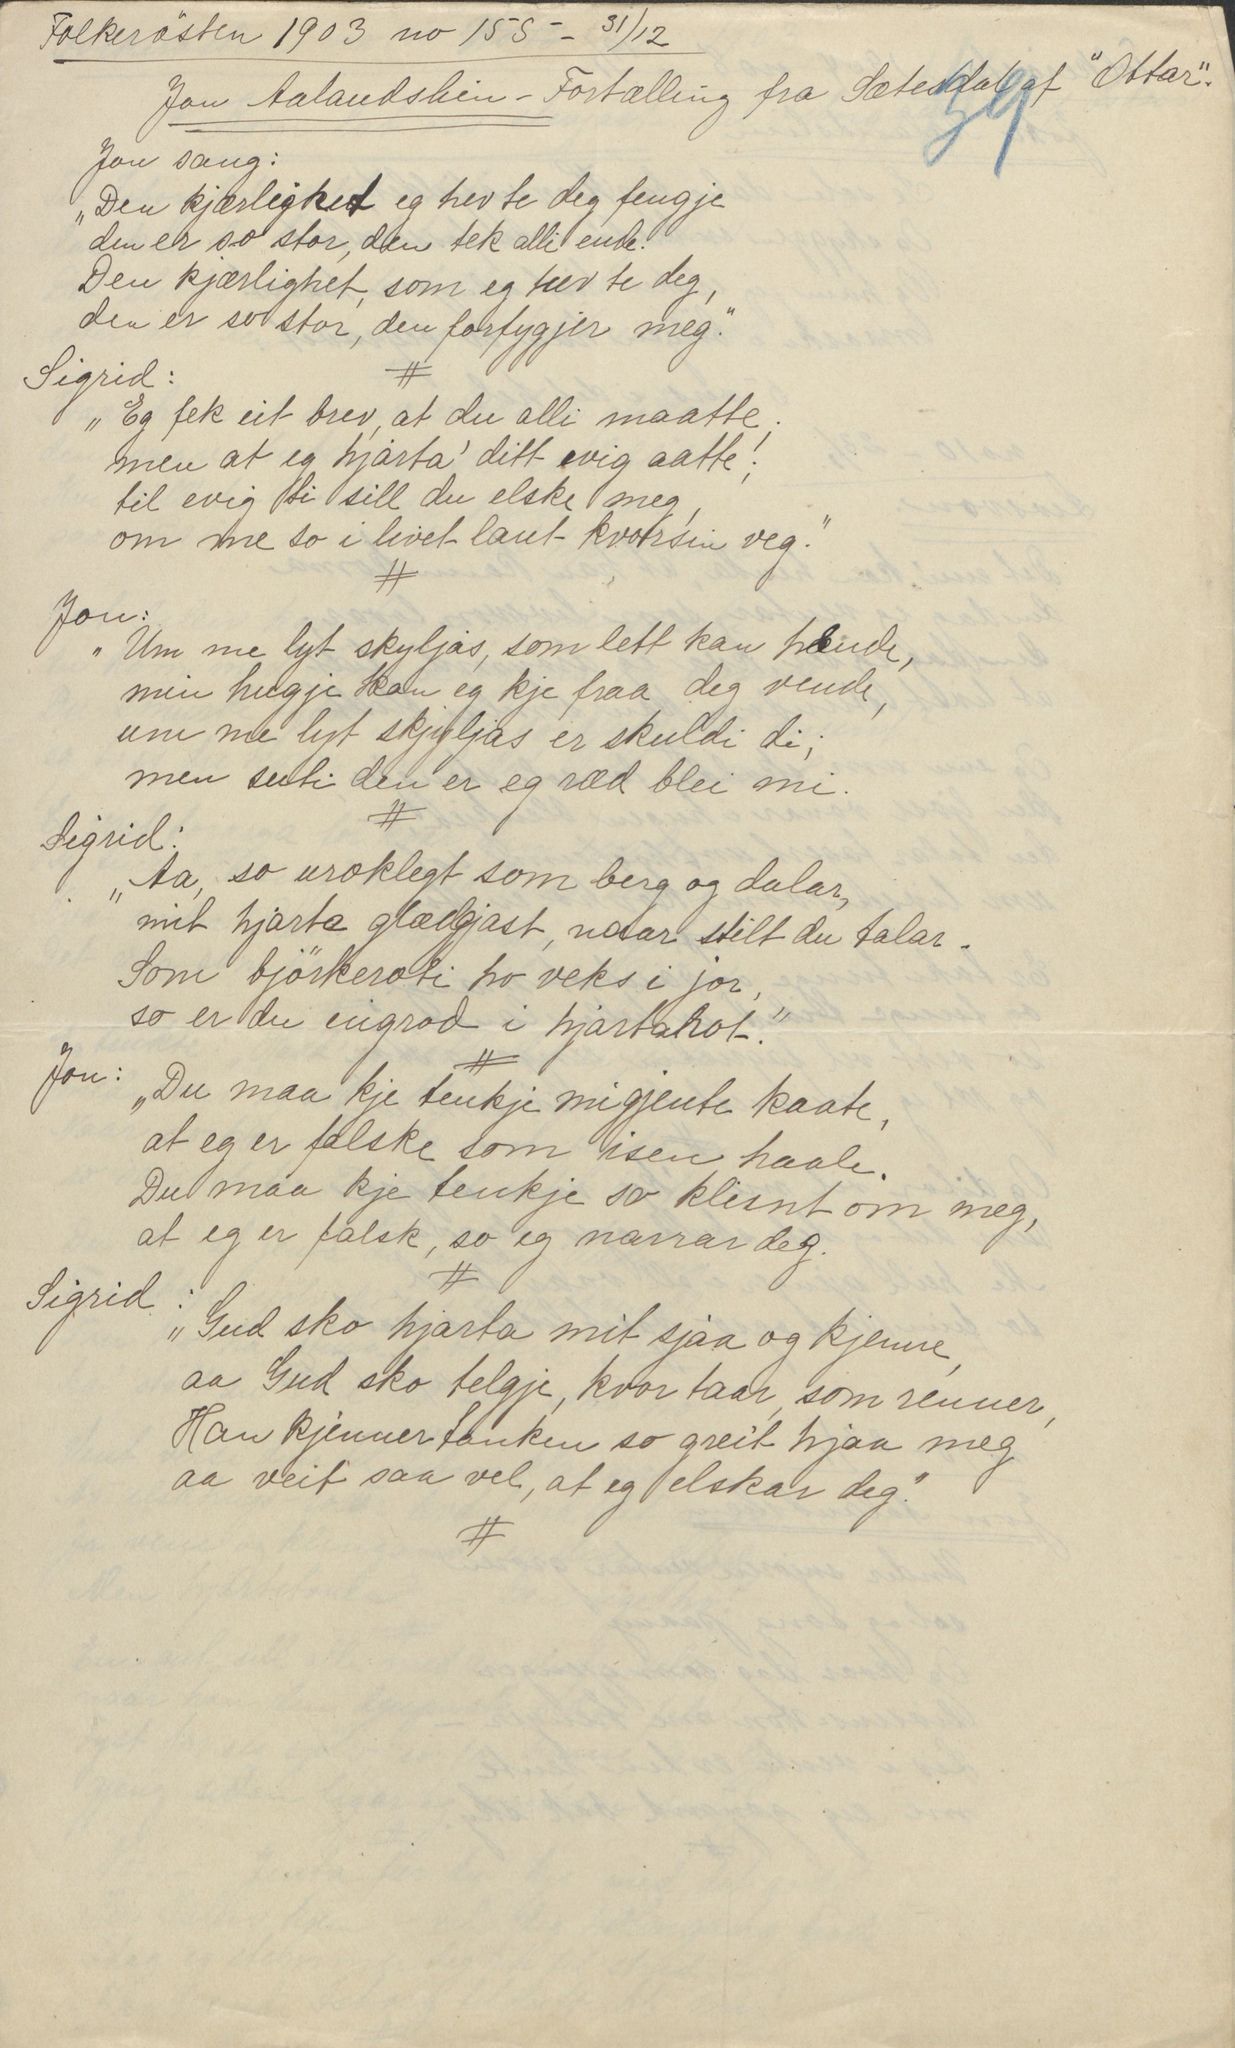 Folkerösten 1903 no 155 - 31/12
Jon Aalandslien - Fortælling fra Sætesdal af "Ottar".
39
Jon sang:
„Den kjærlighet eg hev te deg fengje
den er so stor, den tek alli ende.
Den kjærlighet, som eg hev te deg,
den er so stor, den forfygjer meg."
#
Sigrid:
„Eg fek eit brev, at du alli maatte,
men at eg hjarta' ditt evig aatte!;
til evig ti sill du elske meg,
om me so i livet laut kvor sin veg."
#
Jon:
„Um me lyt skyljas, som lett kan hende,
min hugje kan eg kje fraa deg vende,
um me lyt skjyljas er skuldi di;
men suti den er eg ræd blei mi.
#
Sigrid:
„Aa, so uroklegt som berg og dalar,
mit hjarta glædjast, naar stilt du talar.
Som björkeroti ho veks i jor,
so er du ingrod i hjartahot."
#
Jon:
„Du maa kje tenkje mi gjente kaate,
at eg er falske som isen haale.
Du maa kje tenkje so kleint om meg,
at eg er falsk, so eg narrar deg.
#
Sigrid:
„Gud sko hjarta mit sjaa og kjenne,
aa Gud sko telgje, kvor taar, som renner,
Han kjenner tanken so greit hjaa meg
aa veit saa vel, at eg elskar deg."
#